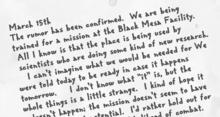 March 15th
The rumor has been confirmed. We are being
trained for a mission at the Black Mesa Facility.
All I know is that the place is being used by
scientists who are doing some kind of new research.
I can't imagine what we would be needed for We
were told today to be ready in case it happens
tomorrow. I don't know what "it" is, but the
whole things is a little strange. I kind of hope it
doesn't happen; the mission doesn't seem to have
potential. I'd rather hold out for
kind of combat.